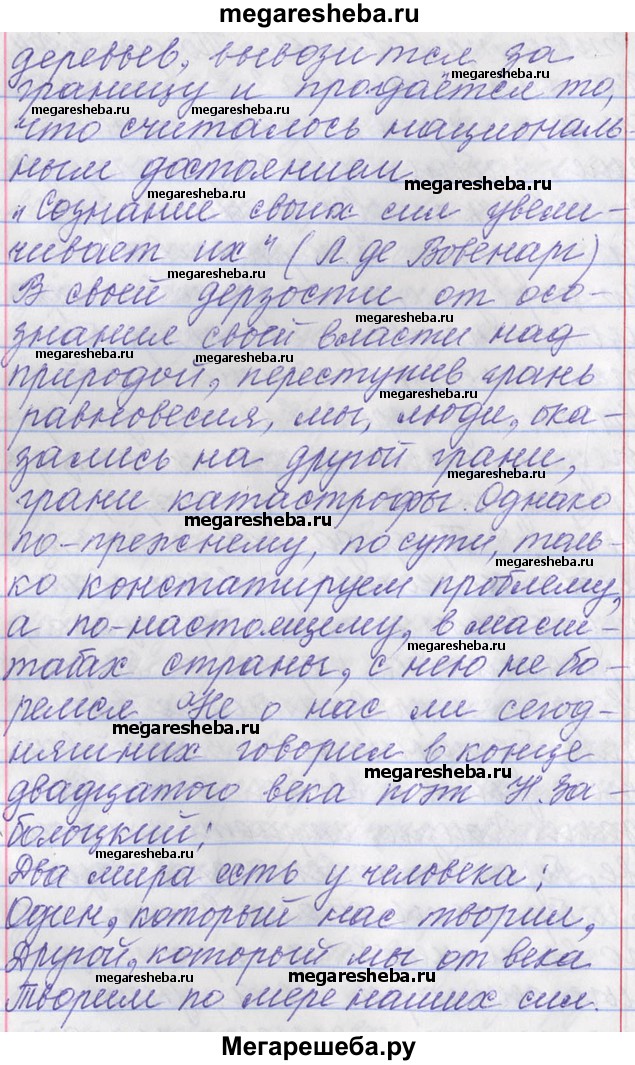 megaresheba.ru
деревьев, вывозится за
границу и продаётся то,
что считалось националь-
ным достоянием
„Сознание своих сил увели-
чивает их“ (Л. де Вовенарг)
В своей дерзости от осо-
знания своей власти над
природой, перестушив грань
равновесия, мы, люди, ока-
зались на другой грани,
грани катастрофы. Однако
по-прежнему, по сути, толь-
ко констатируем проблему,
а по-настоящему, в масш-
табах страны, с нею не бо-
ремся. Не о нас ли сегод-
няшних говорил в конце
двадцатого века поэт Н. За-
болоцкий:
Два мира есть у человека:
Один, который нас творил,
Другой, который мы от века
Творим по мере наших сил.
Мегарешеба.ру